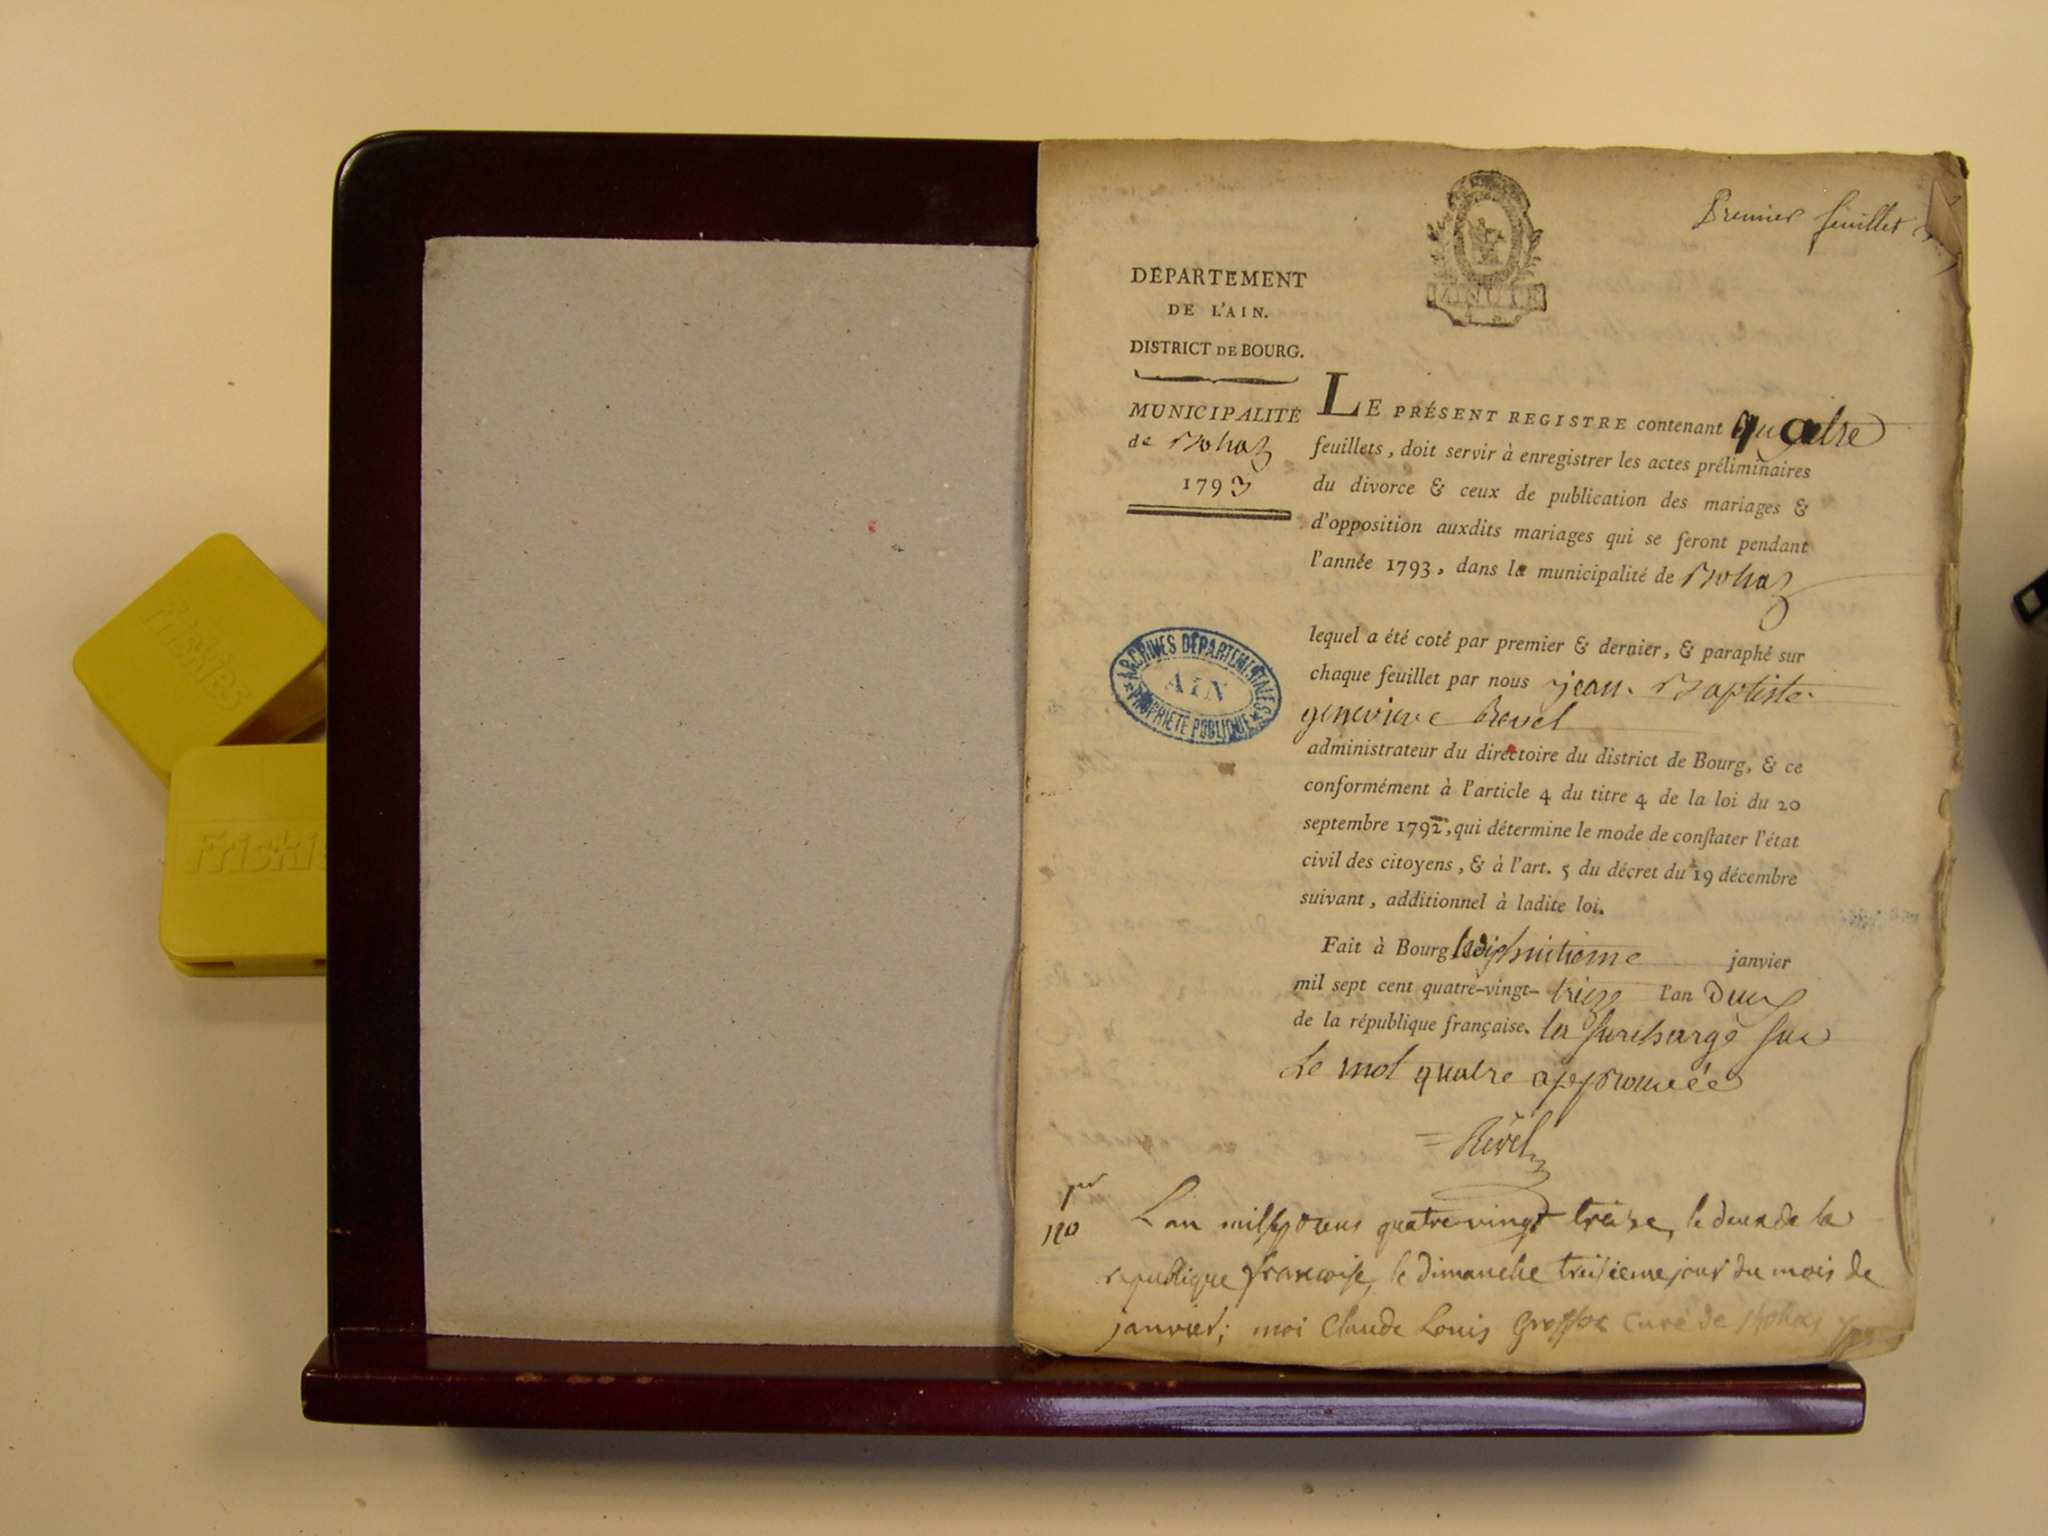 Premier feuillet
MINUTE
DÉPARTEMENT
DE L'AIN.
DISTRICT DE BOURG.
MUNICIPALITÉ
de Bohaz
1793
LE PRÉSENT REGISTRE contenant quatre
feuillets, doit servir à enregistrer les actes préliminaires
du divorce & ceux de publication des mariages &
d'opposition auxdits mariages qui se feront pendant
l'année 1793, dans la municipalité de Bohaz
lequel a été coté par premier & dernier, & paraphé sur
chaque feuillet par nous jean Baptiste
genevieve Revel
administrateur du directoire du district de Bourg, & ce
conformément à l'article 4 du titre 4 de la loi du 20
septembre 1792, qui détermine le mode de constater l'état
civil des citoyens, & à l'art. 5 du décret du 19 décembre
suivant, additionnel à ladite loi.
Fait à Bourg le dixhuitieme janvier
mil sept cent quatre-vingt-treize l'an deux
de la république française. la surcharge sur
Le mot quatre approuvée
Revel
ARCHIVES DÉPARTEMENTALES
AIN
PROPRIÉTÉ PUBLIQUE
L'an mil sept cens quatre vingt treize, le deux de la
republique françoise, le dimanche troisieme jour du mois de
janvier; moi Claude Louis curé de Bohas
Friskies
Friskies